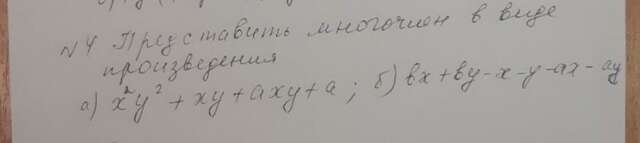 №4 Представить многочлен в виде
произведения
а) x²y² + xy + axy + a ; б) bx + by - x - y - ax - ay